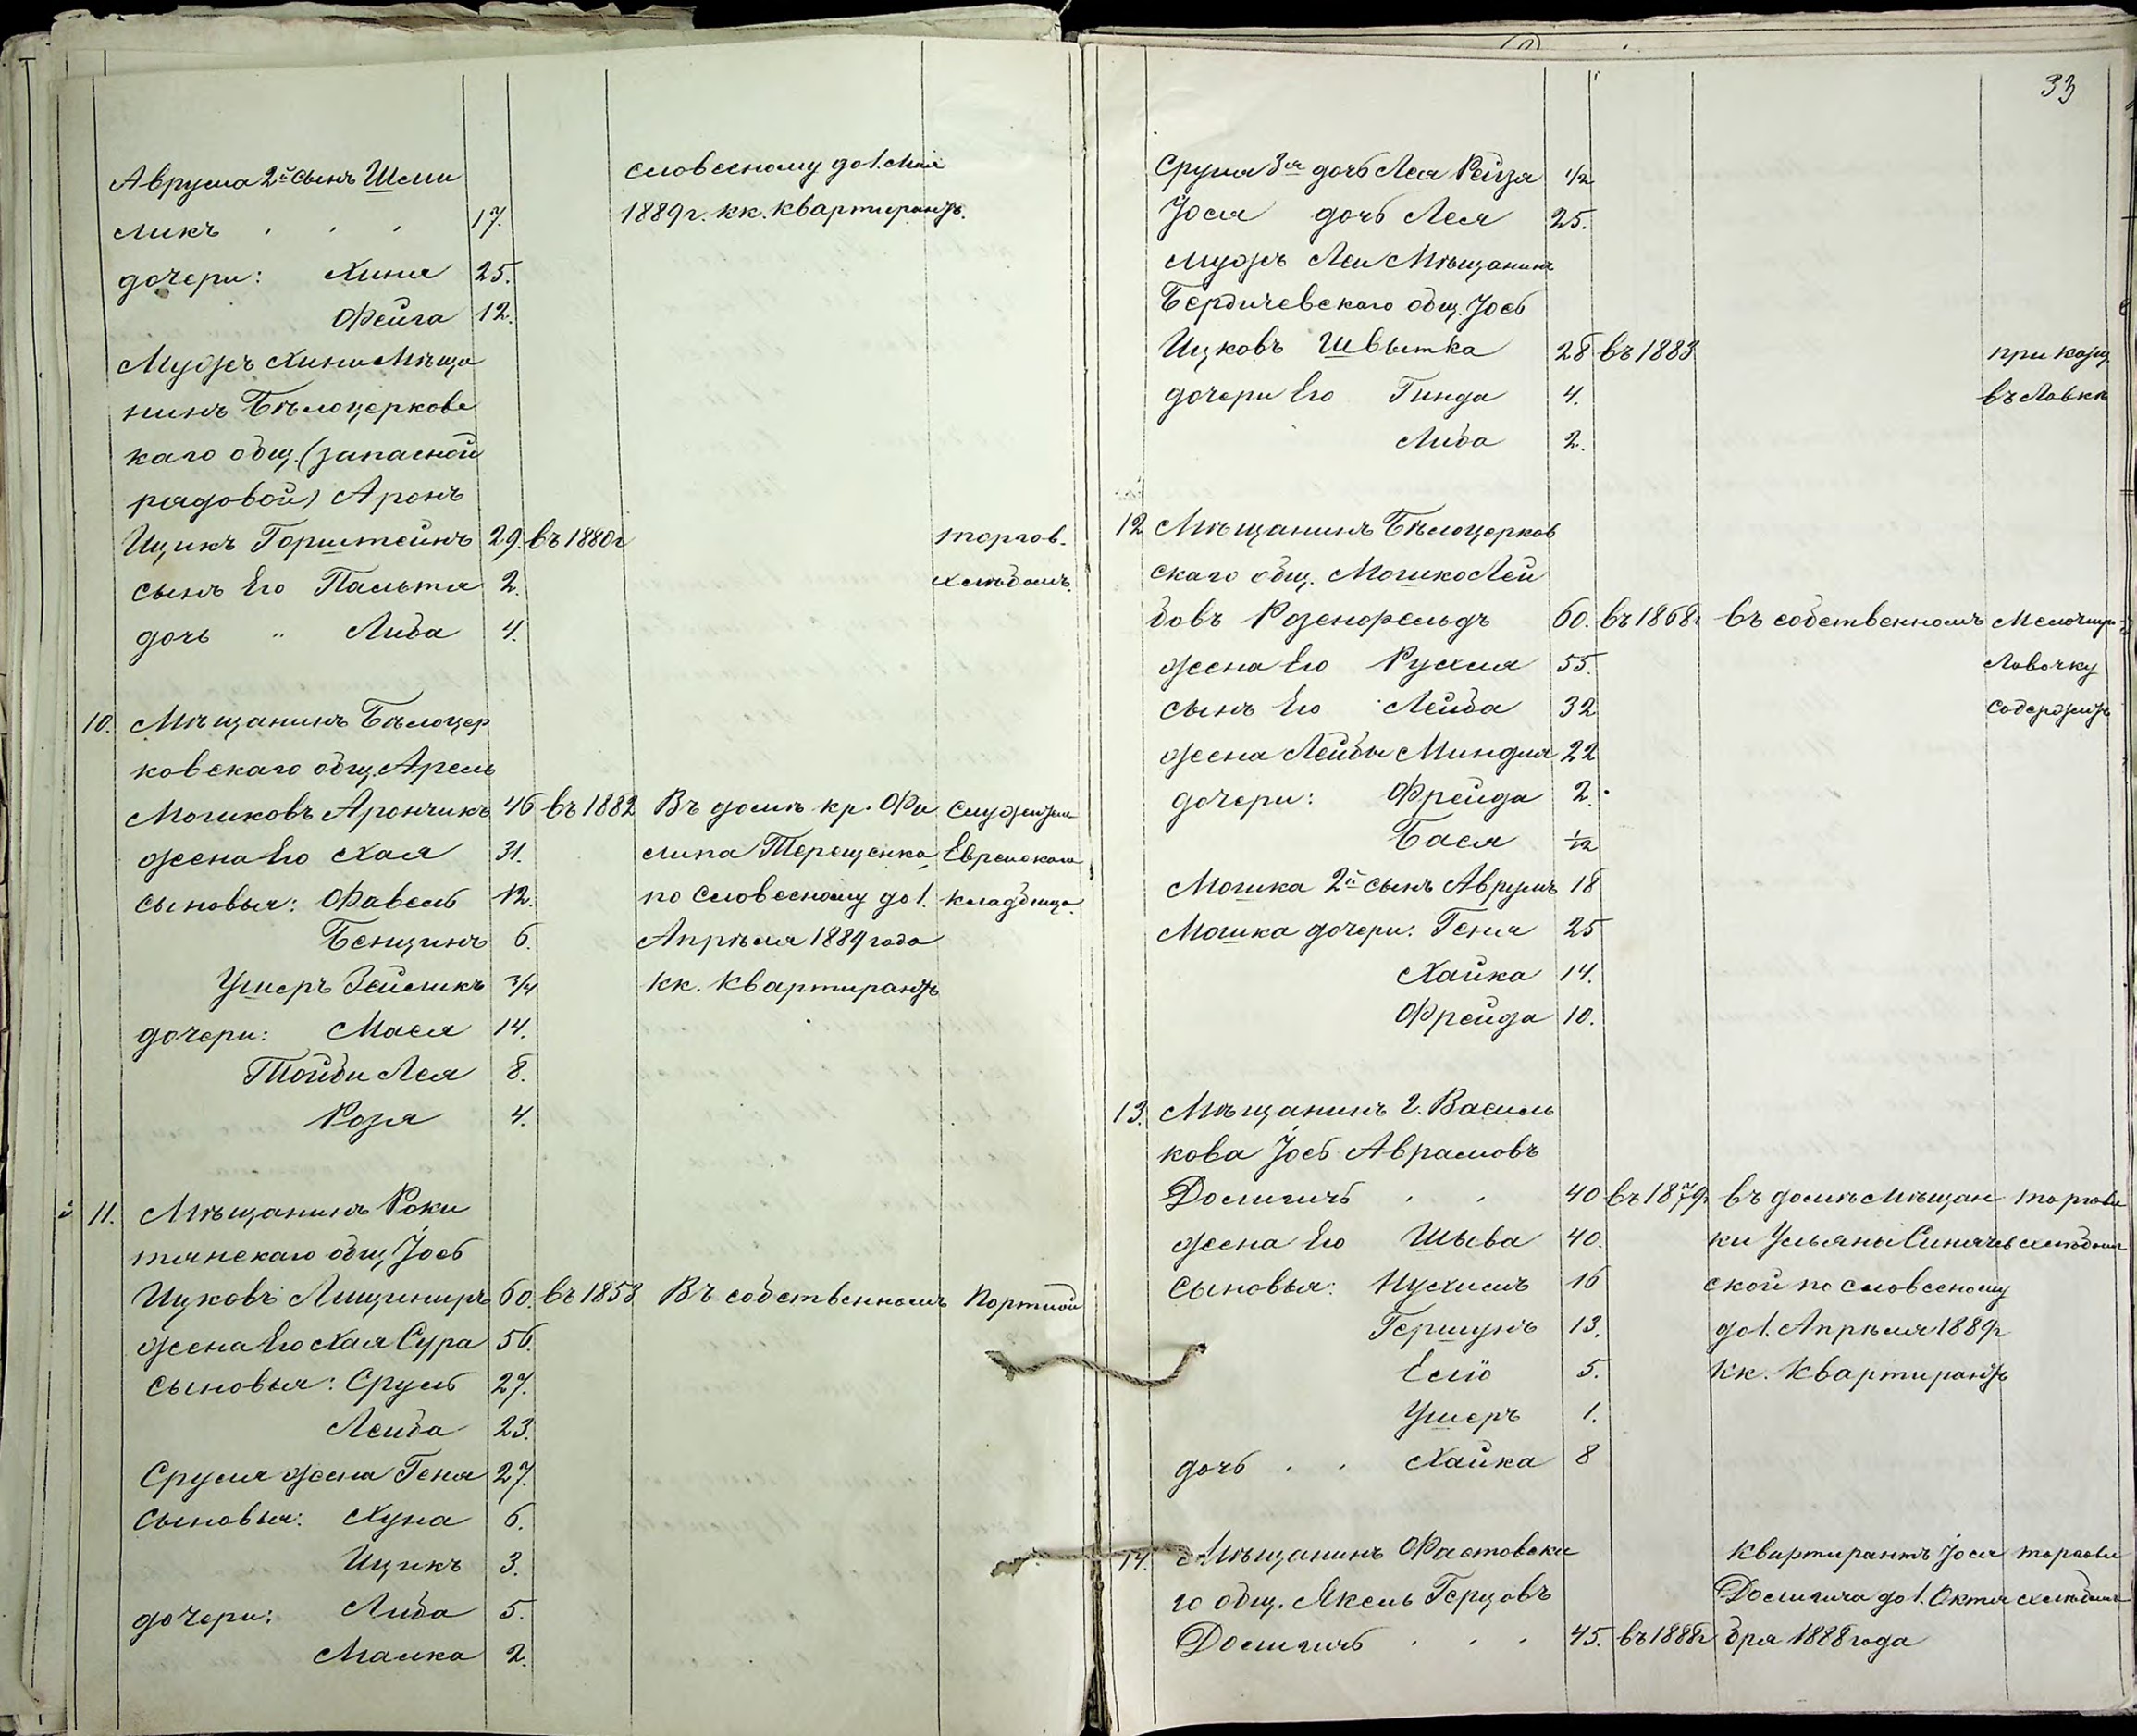 Аврума 2й сынъ Шми словесному до 1. Мая
ликъ 17. 1889 г. кк. квартирантъ.
дочери: Хиня 25.
Фейга 12.
Мужъ Хини Мѣща
нинъ Бѣлоцерковс
каго общ. (запасной
рядовой) Аронъ
Ицикъ Горштейнъ 29. въ 1880 г торгов.
сынъ Его Пальтя 2. хлѣбомъ.
дочь " Либа 4.
10. Мѣщанинъ Бѣлоцер
ковскаго общ. Арель
Мошковъ Арончикъ 46 въ 1882 Въ домѣ кр. Фи
жена Его Хая 31. липа Терещенка Еврейскаго
сыновья: Фавель 12. по словесному до 1. кладбища.
Бенціинъ 6. Апрѣля 1889 года
Ушеръ Зейликъ 3/4 кк. квартирантъ
дочери: Мася 14.
Тойби Лея 8.
Розя 4.
11. Мѣщанинъ Роки
тянскаго общ. Іось
Ицковъ Лищиниръ 60. въ 1858 Въ собственномъ Портной
жена Его Хая Сура 56.
сыновья: Сруль 27.
Лейба 23.
Сруля жена Геня 27.
сыновья: Хуна 6.
Ицикъ 3.
дочери: Либа 5.
Малка 2.
33
Сруля 3я дочь Лея Рейзя 1/2
Іося дочь Лея 25.
мужъ Леи Мѣщанинъ
Бердичевскаго общ. Іось
Ицковъ Швытка 28 въ 1883 приказч
дочери Его Гинда 4. въ Лавкѣ
Либа 2.
12 Мѣщанинъ Бѣлоцерков
скаго общ. Мошко Лей
бовъ Розенфельдъ 60. въ 1868 г въ собственномъ Мелочную
жена Его Рухля 55. Лавочку
сынъ Его Лейба 32 содержитъ
жена Лейбы Миндля 22
дочери: Фрейда 2.
Бася 1/2
Мошка 2й сынъ Аврумъ 18
Мошка дочери: Геня 25
Хайка 14.
Фрейда 10.
13. Мѣщанинъ г. Василь
кова Іось Абрамовъ
Досмигичъ 40 въ 1879 г въ домѣ мѣщан торговл
жена Его Шыва 40. ки Ульяны хлѣбомъ
сыновья: Нухимъ 16 ской по словесному
Гершунъ 13. до 1. Апрѣля 1889 г
Еліо 5. кк. квартирантъ
Ушеръ 1.
дочь Хайка 8
14. Мѣщанинъ Фастовска квартирантъ Іося торговл
го общ. Якель Герцовъ Досмигича до 1. Октя хлѣбомъ
Досмигичъ 45. въ 1888 г бря 1888 года